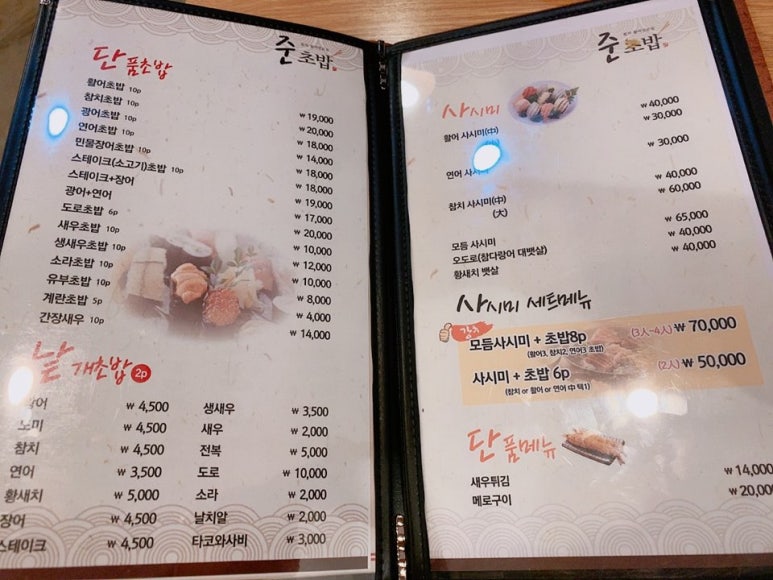 준초밥
단품초밥
활어초밥 10p ₩ 19,000
참치초밥 10p ₩ 20,000
광어초밥 10p ₩ 18,000
연어초밥 10p ₩ 14,000
민물장어초밥 10p ₩ 18,000
스테이크(소고기)초밥 10p ₩ 18,000
스테이크+장어 ₩ 19,000
광어+연어 ₩ 17,000
도로초밥 6p ₩ 20,000
새우초밥 10p ₩ 10,000
생새우초밥 10p ₩ 12,000
소라초밥 10p ₩ 10,000
유부초밥 10p ₩ 8,000
계란초밥 5p ₩ 4,000
간장새우 10p ₩ 14,000
낱개초밥 2p
광어 ₩ 4,500 생새우 ₩ 3,500
도미 ₩ 4,500 새우 ₩ 2,000
참치 ₩ 4,500 전복 ₩ 5,000
연어 ₩ 3,500 도로 ₩ 10,000
황새치 ₩ 5,000 소라 ₩ 2,000
장어 ₩ 4,500 날치알 ₩ 2,000
스테이크 ₩ 4,500 타코와사비 ₩ 3,000
준초밥
사시미
활어 사시미(中) ₩ 40,000
₩ 30,000
연어 사시미 ₩ 30,000
참치 사시미(中) ₩ 40,000
(大) ₩ 60,000
모듬 사시미 ₩ 65,000
오도로(참다랑어 대뱃살) ₩ 40,000
황새치 뱃살 ₩ 40,000
사시미 세트메뉴
모듬사시미 + 초밥8p (3人-4人) ₩ 70,000
(활어3, 참치2, 연어3 초밥)
사시미 + 초밥 6p (2人) ₩ 50,000
(참치 or 활어 or 연어 中 택1)
단품메뉴
새우튀김 ₩ 14,000
메로구이 ₩ 20,000